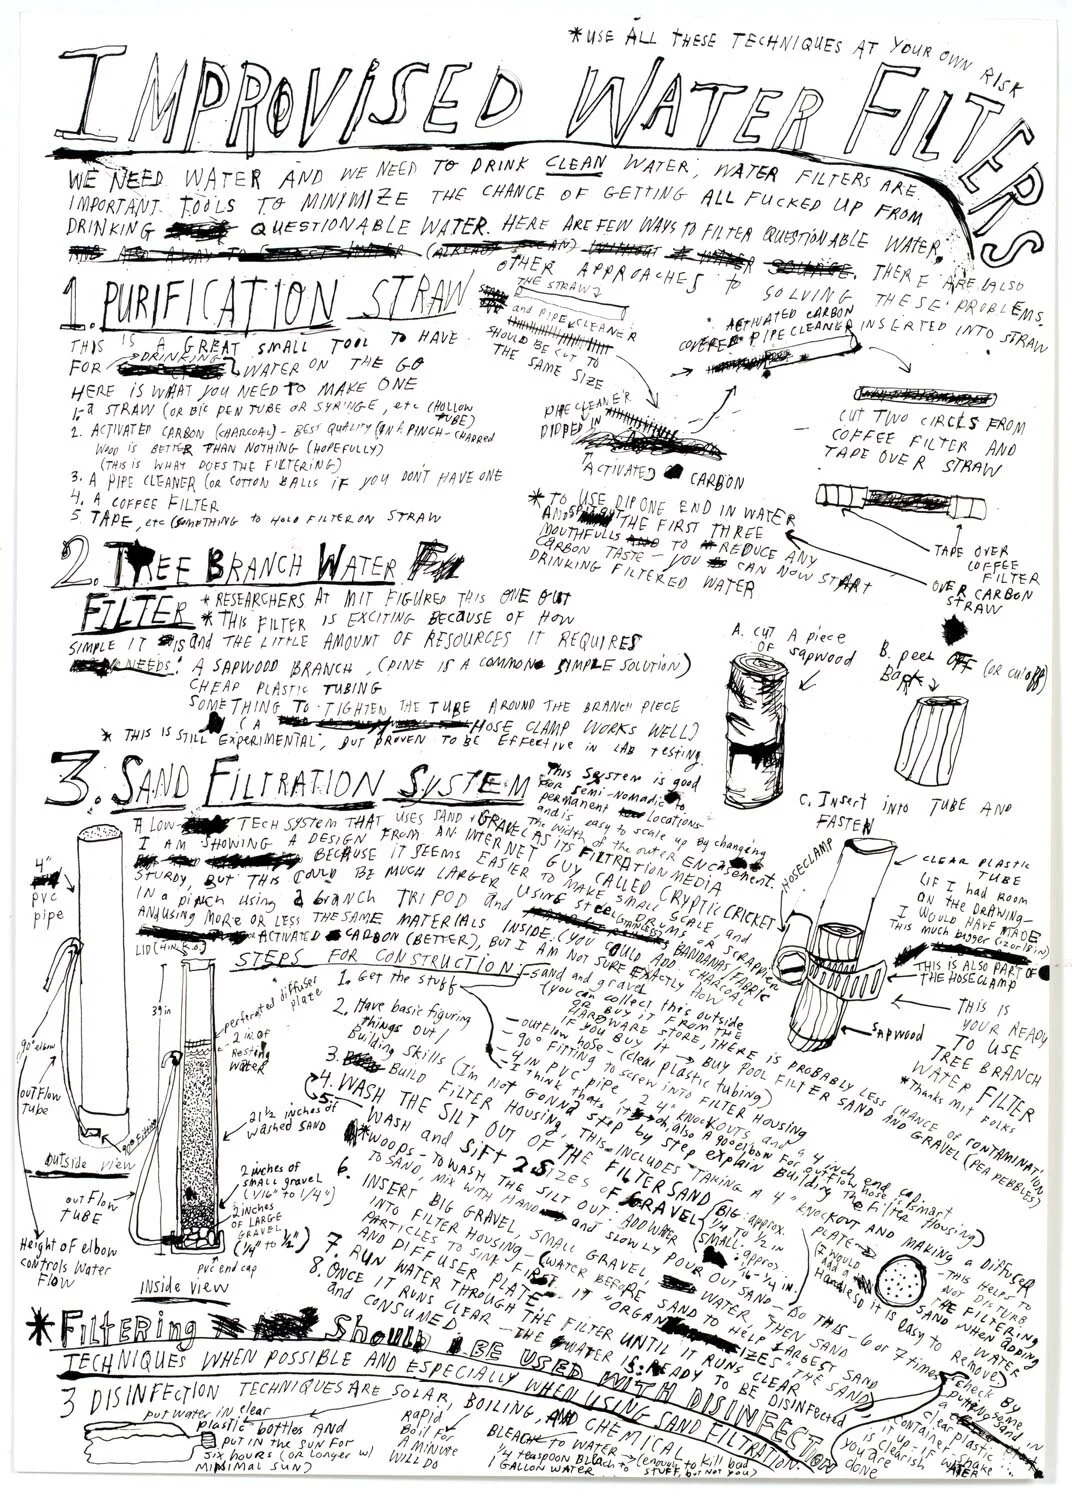 *USE ALL THESE TECHNIQUES AT YOUR OWN RISK
IMPROVISED WATER FILTERS
WE NEED WATER AND WE NEED TO DRINK CLEAN WATER, WATER FILTERS ARE
IMPORTANT TOOLS TO MINIMIZE THE CHANCE OF GETTING ALL FUCKED UP FROM
DRINKING QUESTIONABLE WATER. HERE ARE FEW WAYS TO FILTER QUESTIONABLE WATER,
THERE ARE ALSO
OTHER APPROACHES to SOLVING THESE PROBLEMS.
1. PURIFICATION STRAW
THIS IS A GREAT SMALL TOOL TO HAVE
FOR DRINKING WATER ON THE GO
HERE IS WHAT YOU NEED TO MAKE ONE
1. a STRAW (OR BIC PEN TUBE OR SYRINGE, etc (HOLLOW
TUBE)
2. ACTIVATED CARBON (CHARCOAL) - BEST QUALITY (IN A PINCH - CHARRED
WOOD IS BETTER THAN NOTHING (HOPEFULLY)
(THIS IS WHAT DOES THE FILTERING)
3. A PIPE CLEANER (OR COTTON BALLS IF YOU DON'T HAVE ONE
4. A COFFEE FILTER
5. TAPE, etc (SOMETHING to HOLD FILTER ON STRAW
THE STRAW
and PIPE CLEANER
SHOULD BE CUT TO
THE SAME SIZE
PIPE CLEANER
DIPPED IN
ACTIVATED CARBON
ACTIVATED CARBON
COVERED PIPE CLEANER INSERTED INTO STRAW
CUT TWO CIRCLES FROM
COFFEE FILTER AND
TAPE OVER STRAW
TAPE OVER
COFFEE
FILTER
OVER CARBON
STRAW
* TO USE DIP ONE END IN WATER
AND SPIT OUT THE FIRST THREE
MOUTHFULLS TO REDUCE ANY
CARBON TASTE - YOU CAN NOW START
DRINKING FILTERED WATER
2. TREE BRANCH WATER
FILTER
* RESEARCHERS AT MIT FIGURED THIS ONE OUT
* THIS FILTER IS EXCITING BECAUSE OF HOW
SIMPLE IT IS and THE LITTLE AMOUNT OF RESOURCES IT REQUIRES
NEEDS: A SAPWOOD BRANCH, (PINE IS A COMMON SIMPLE SOLUTION)
CHEAP PLASTIC TUBING
SOMETHING TO TIGHTEN THE TUBE AROUND THE BRANCH PIECE
(A HOSE CLAMP WORKS WELL)
* THIS IS STILL "EXPERIMENTAL", BUT PROVEN TO BE EFFECTIVE IN LAB TESTING
A. CUT A piece
OF Sapwood
B. peel OFF (or cut off)
BARK
C. Insert into TUBE AND
FASTEN
HOSECLAMP
CLEAR PLASTIC
TUBE
(IF I HAD ROOM
ON THE DRAWING -
I WOULD HAVE MADE
THIS MUCH bigger
THIS IS ALSO PART OF
THE HOSECLAMP
SAPWOOD
THIS IS
YOUR READY
TO USE
TREE BRANCH
WATER FILTER
*Thanks MIT FOLKS
3. SAND FILTRATION SYSTEM
This System is good
FOR Semi-Nomadic to
permanent Locations
and is easy to scale up By changing
The Width of the outer Encasement.
A LOW-TECH SYSTEM THAT USES SAND & GRAVEL AS ITS FILTRATION MEDIA
I AM SHOWING A DESIGN FROM AN INTERNET GUY CALLED CRYPTIC CRICKET
BECAUSE IT SEEMS EASIER TO MAKE SMALL SCALE, and
STURDY, BUT THIS COULD BE MUCH LARGER USING STEEL DRUMS OR SCRAPPIER
IN a pinch using a branch TRIPOD and BANDANAS/FABRIC
AND USING MORE OR LESS THE SAME MATERIALS INSIDE. (YOU COULD ADD CHARCOAL
OR ACTIVATED CARBON (BETTER), BUT I AM NOT SURE EXACTLY HOW
4"
PVC
PIPE
90° elbow
outFlow
TUBE
90° Fitting
outside view
Height of elbow
controls Water
Flow
LID
39 in
perforated diffuser
plate
2 in of
Resting
water
21 1/2 inches of
washed SAND
2 inches of
small gravel
(1/16" to 1/4")
2 inches
OF LARGE
GRAVEL
(1/4" to 1/2")
outFlow
TUBE
PVC end cap
Inside view
STEPS FOR CONSTRUCTION:
1. Get the stuff
sand and gravel
(you can collect this outside
or BUY IT FROM THE
HARDWARE STORE, THERE IS PROBABLY LESS CHANCE OF CONTAMINATION
IF YOU BUY IT → BUY POOL FILTER SAND AND GRAVEL (PEA PEBBLES)
- outflow hose - (clear plastic tubing)
- 90° FITTING TO screw INTO FILTER HOUSING
- 4 IN PVC pipe, 2 4" KNOCKOUTS, and a 4 inch end cap
I think that's it
2. Have basic figuring
things out/
Building Skills (I'm not gonna step by step explain Building The Filter Housing)
3. BUILD FILTER HOUSING, THIS INCLUDES TAKING A 4" KNOCKOUT AND MAKING a DIFFUSER
PLATE
4. WASH THE SILT OUT OF THE FILTER SAND
5. WASH and SIFT 2 SIZES OF GRAVEL
BIG: approx.
1/4 to 1/2 in
SMALL: approx.
1/16 - 1/4 in.
* WOOPS - TO WASH THE SILT OUT: ADD WATER
TO SAND, MIX WITH HAND and SLOWLY POUR OUT SAND - DO THIS - 6 or 7 times
6. INSERT BIG GRAVEL, SMALL GRAVEL, WATER, THEN SAND
INTO FILTER HOUSING - (WATER BEFORE SAND TO HELP LARGEST SAND
PARTICLES TO SINK FIRST
AND DIFFUSER PLATE
7. RUN WATER THROUGH THE FILTER UNTIL IT RUNS CLEAR
8. ONCE IT RUNS CLEAR - THE WATER IS READY TO BE DISINFECTED
and CONSUMED
- THIS HELPS TO
NOT DISTURB
THE FILTERING
SAND WHEN adding
WATER
so it is easy to Remove)
check By
putting some
Sand in
a clear plastic
container, shake
it up - IF WATER
is clearish
you are
done
*Filtering Should BE USED WITH DISINFECTION
TECHNIQUES WHEN POSSIBLE AND ESPECIALLY WHEN USING SAND FILTRATION.
3 DISINFECTION TECHNIQUES ARE SOLAR, BOILING, AND CHEMICAL
put water in clear
plastic bottles AND
PUT IN THE SUN FOR
SIX HOURS (OR Longer w/
MINIMAL SUN)
Rapid
Boil For
A MINUTE
WILL DO
BLEACH TO WATER - (enough to kill bad
STUFF, but not you)
1/4 TEASPOON BLEACH to
1 GALLON WATER